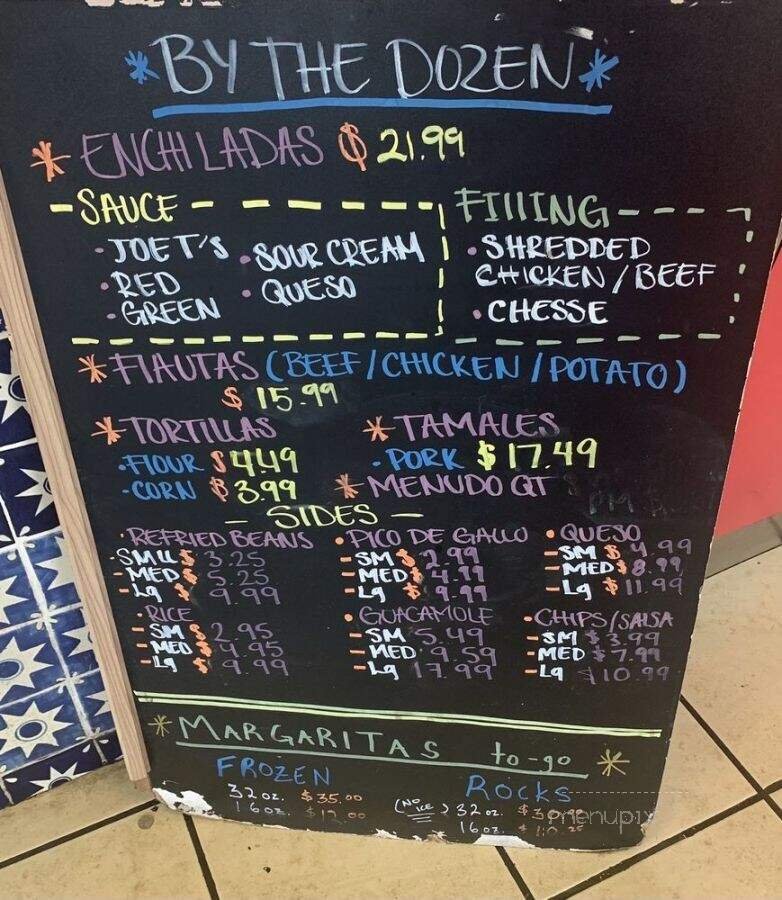 BY THE DOZEN
ENCHILADAS $21.99
SAUCE
JOE T'S
RED
GREEN
SOUR CREAM
QUESO
FILLING
SHREDDED
CHICKEN / BEEF
CHESSE
FLAUTAS (BEEF / CHICKEN / POTATO)
$15.99
TORTILLAS
FLOUR $4.49
CORN $3.99
TAMALES
PORK $17.49
MENUDO QT
SIDES
REFRIED BEANS
SMLL $3.25
MED $5.25
Lg $9.99
PICO DE GALLO
SM $2.99
MED $4.99
Lg $9.99
QUESO
SM $4.99
MED $8.99
Lg $11.99
RICE
SM $2.95
MED $4.95
Lg $9.99
GUACAMOLE
SM 5.49
MED 9.59
Lg 17.99
CHIPS/SALSA
SM $3.99
MED $7.99
Lg $10.99
MARGARITAS to-go
FROZEN
32 oz. $35.00
16 oz. $12.00
ROCKS
(NO ICE) 32 oz.
16 oz.
menupix